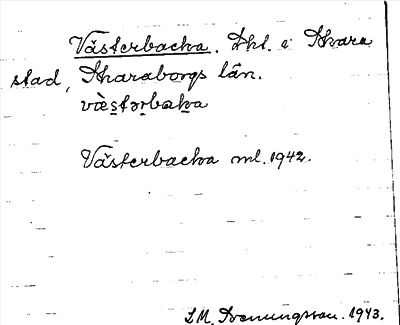 Västerbacka. Dht. i Skara
stad, Skaraborgs län.
væ̀stərbaka
Västerbacka ml. 1942.
S.M. Svenungsson. 1943.